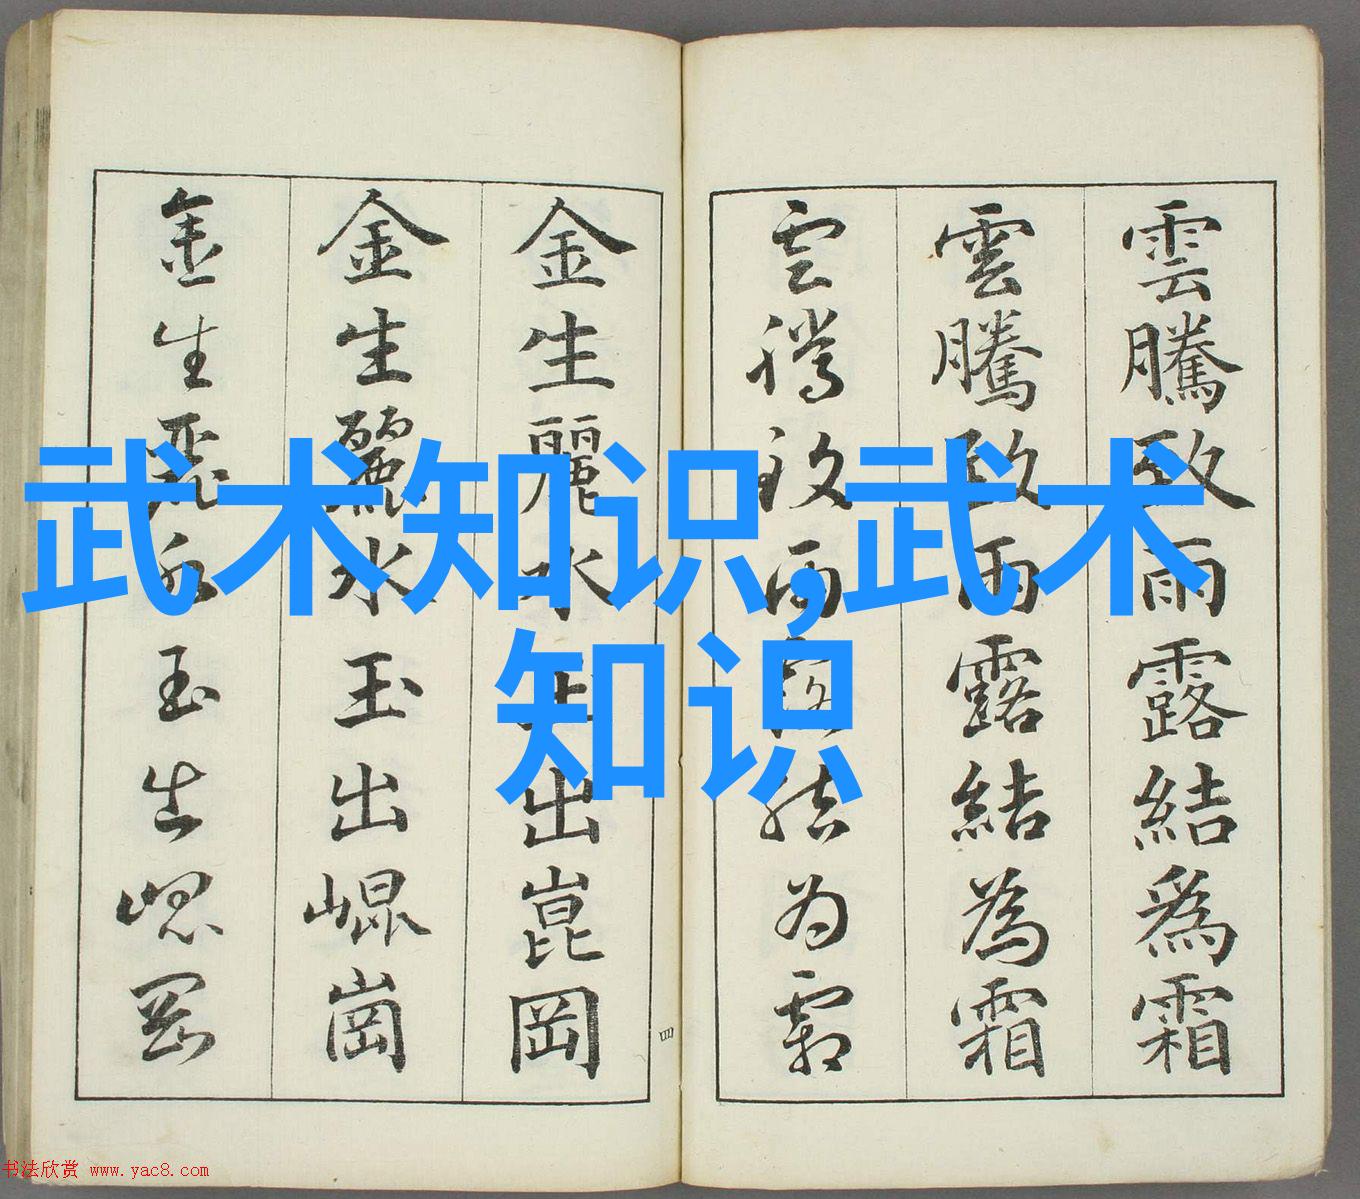 雲騰致雨露結爲霜
雲騰致雨露結為霜
雲騰致雨露结为霜
金生麗水玉出崑岡
金生麗水玉出崐崗
金生麗水玉出崐岡
四
武术知识,武术
知识
书法欣赏 www.yac8.com